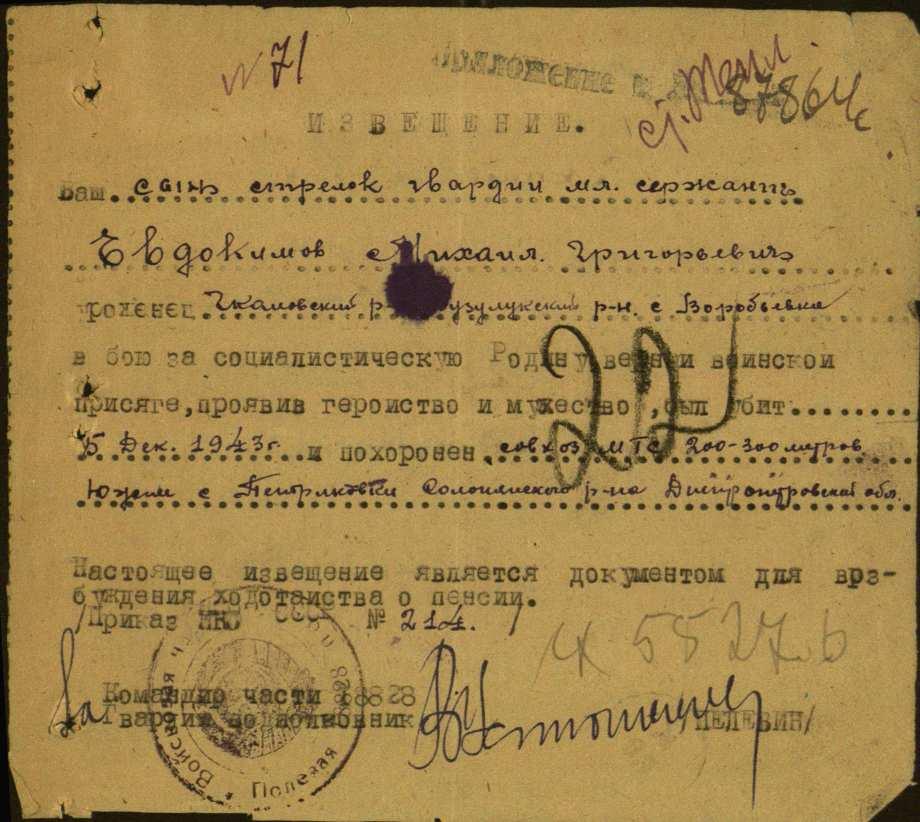 №71
Приложение к
87864с
ИЗВЕЩЕНИЕ.
Ваш сын стрелок гвардии мл. сержант
Евдокимов Михаил Григорьевич
уроженец Чкаловский Бузулукский р-н. с Воробьевка
в бою за социалистическую Родину верный воинской
присяге, проявив героиство и мужество, был убит
5 Дек. 1943г. и похоронен совхоз МТС 200-300 метров
Южн с Петриковки Солонянского р-на Днепропетровской обл.
Настоящее извещение является документом для врз-
буждения ходотаиства о пенсии.
/Приказ НКО СССР № 214. /
4 55276
Командир части 28828
За Гвардии подполковник /ПЕЛЕВИН/
Войсковая ч
Полевая
28828
221